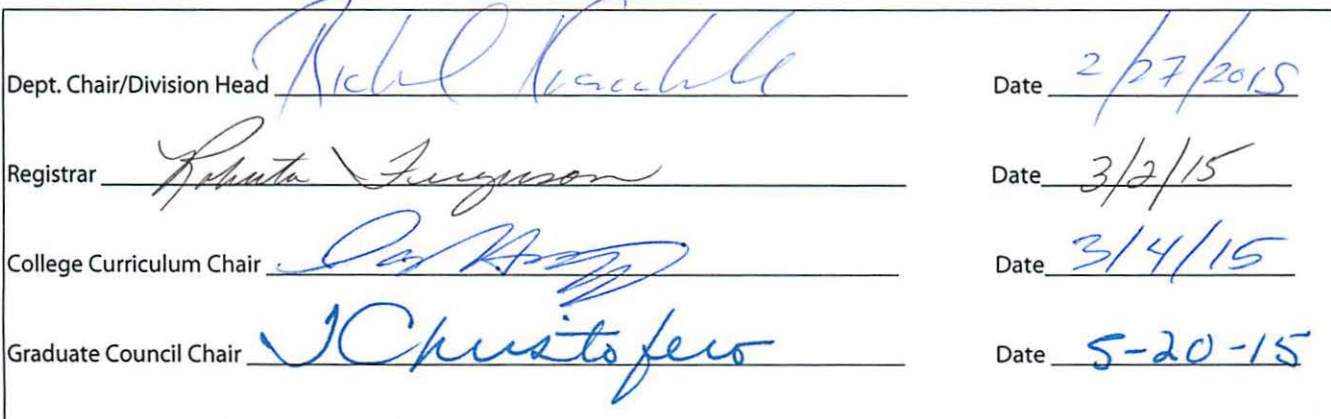 Dept. Chair/Division Head Date 2/27/2015
Registrar Roberta Ferguson Date 3/2/15
College Curriculum Chair Date 3/4/15
Graduate Council Chair J Christofero Date 5-20-15